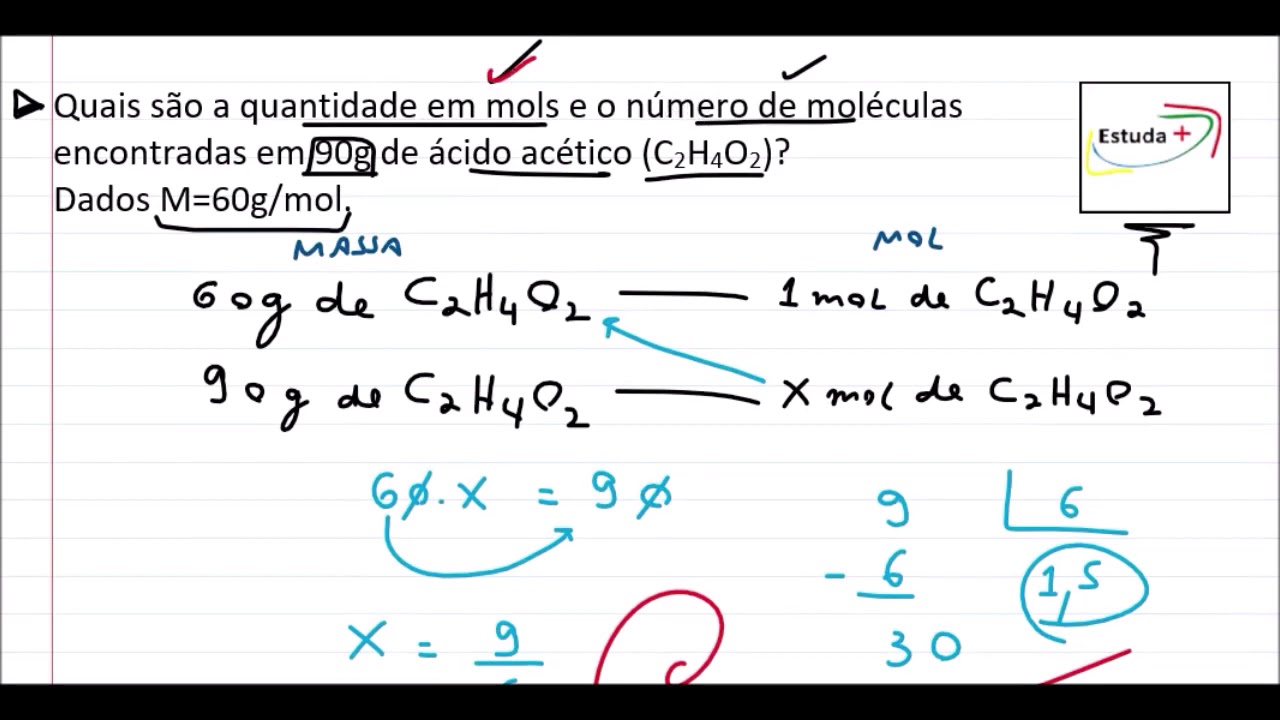 Quais são a quantidade em mols e o número de moléculas
encontradas em 90g de ácido acético (C₂H₄O₂)?
Dados M=60g/mol.
Estuda +
MASSA MOL
60g de C₂H₄O₂ —— 1 mol de C₂H₄O₂
90g de C₂H₄O₂ —— X mol de C₂H₄O₂
60.X = 90
9 6
- 6 1,5
X = 9
30